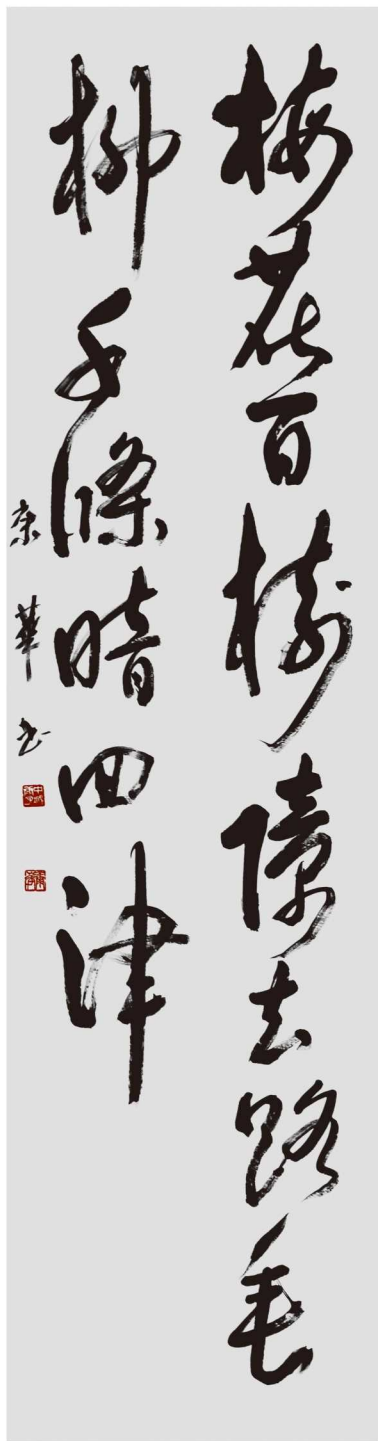 梅花百樹障去路垂
柳千條暗回津
康華书